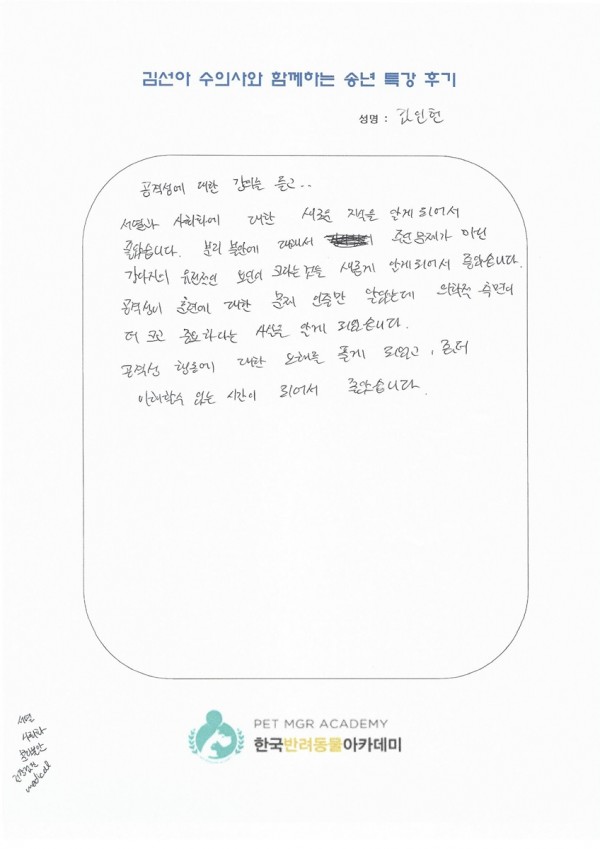 김선아 수의사와 함께하는 송년 특강 후기
성명 :
공격성에 대한 강의를 듣고..
서열과 사회화에 대한 새로운 지식을 알게 되어서
좋았습니다. 분리 불안에 대해서 주인 문제가 아닌
강아지의 유전적인 요인이 크다는 것을 새롭게 알게되어서 좋았습니다.
공격성이 훈련에 대한 문제 인줄만 알았는데 의학적 측면이
더 크고 중요하다는 사실을 알게 되었습니다.
공격성 행동에 대한 오해를 풀게 되었고, 좀더
이해할수 있는 시간이 되어서 좋았습니다.
서열
사회화
분리불안
medical
PET MGR ACADEMY
한국반려동물아카데미